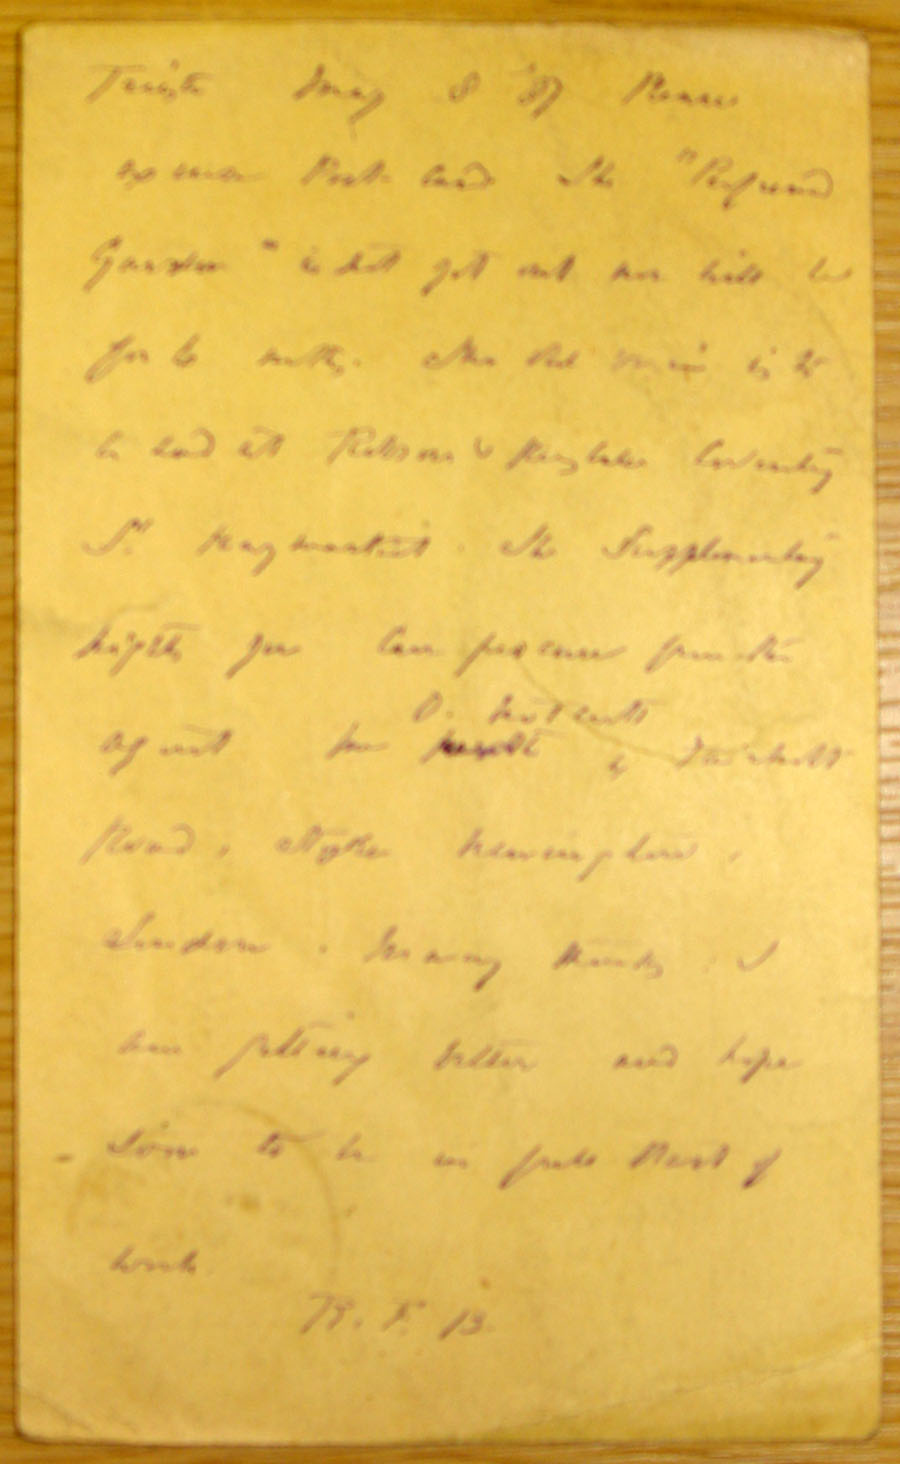 Trieste May 8 '87 Please
excuse Post card The "Perfumed
Garden" is not got out nor will be
for 6 mths. The Red is to
be had at Robson & Coventry
St. Haymarket. The Supplementary
Nights you can procure from the
agent Mr
O. Notcutt
Road, Stoke Newington,
London. Many thanks. I
am getting better and hope
soon to be in full blast of
work.
R. F. B.